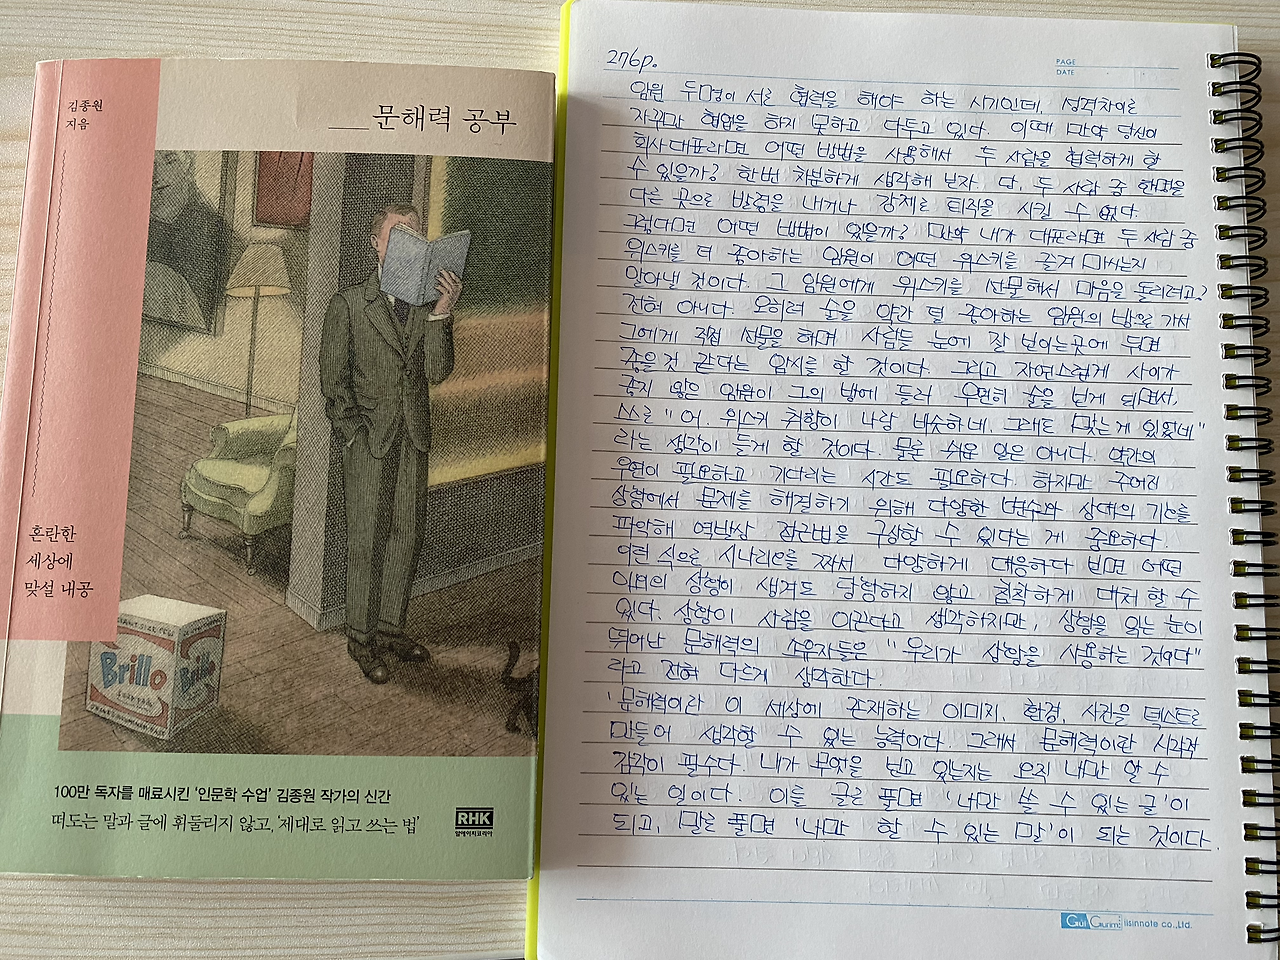 김종원
지음
문해력 공부
흔란한
세상에
맞설 내공
GIANT SIZE PKG
Brillo
Brillo
100만 독자를 매료시킨 '인문학 수업' 김종원 작가의 신간
떠도는 말과 글에 휘둘리지 않고, '제대로 읽고 쓰는 법'
RHK
알에이치코리아
276p.
PAGE
DATE
임원 두명이 서로 협력을 해야 하는 시기인데, 성격차이로
자꾸만 협업을 하지 못하고 다투고 있다. 이때 만약 당신이
회사대표라면 어떤 방법을 사용해서 두 사람을 협력하게 할
수 있을까? 한번 차분하게 생각해 보자. 단, 두 사람 중 한명을
다른 곳으로 발령을 내거나 강제로 퇴직을 시킬 수 없다.
그렇다면 어떤 방법이 있을까? 만약 내가 대표라면 두 사람 중
위스키를 더 좋아하는 임원이 어떤 위스키를 즐겨 마시는지
알아낼 것이다. 그 임원에게 위스키를 선물해서 마음을 돌리려고?
전혀 아니다. 오히려 술을 약간 덜 좋아하는 임원의 방으로 가서
그에게 직접 선물을 하며 사람들 눈에 잘 보이는곳에 두면
좋을것 같다는 암시를 할 것이다. 그리고 자연스럽게 사이가
좋지 않은 임원이 그의 방에 들러 우연히 술을 보게 되면서,
스스로 "어, 위스키 취향이 나랑 비슷하네. 그래도 맞는게 있었네"
라는 생각이 들게 할 것이다. 물론 쉬운 일은 아니다. 약간의
우연이 필요하고 기다리는 시간도 필요하다. 하지만 주어진
상황에서 문제를 해결하기 위해 다양한 변수와 상대의 기호를
파악해 역발상 접근법을 구상할 수 있다는 게 중요하다.
이런 식으로 시나리오를 짜서 다양하게 대응하다 보면 어떤
이변의 상황이 생겨도 당황하지 않고 침착하게 대처 할 수
있다. 상황이 사람을 이끈다고 생각하지만, 상황을 읽는 눈이
뛰어난 문해력의 소유자들은 "우리가 상황을 사용하는 것이다"
라고 전혀 다르게 생각한다.
'문해력이란 이 세상에 존재하는 이미지, 환경, 사진을 텍스트로
만들어 생각할 수 있는 능력이다. 그래서 문해력이란 시각적
감각이 필수다. 내가 무엇을 보고 있는지는 오직 나만 알 수
있는 일이다. 이를 글로 풀면 '나만 쓸 수 있는 글'이
되고, 말로 풀면 '나만 할 수 있는 말'이 되는 것이다.
Gut Gurim iisinnote co.,Ltd.